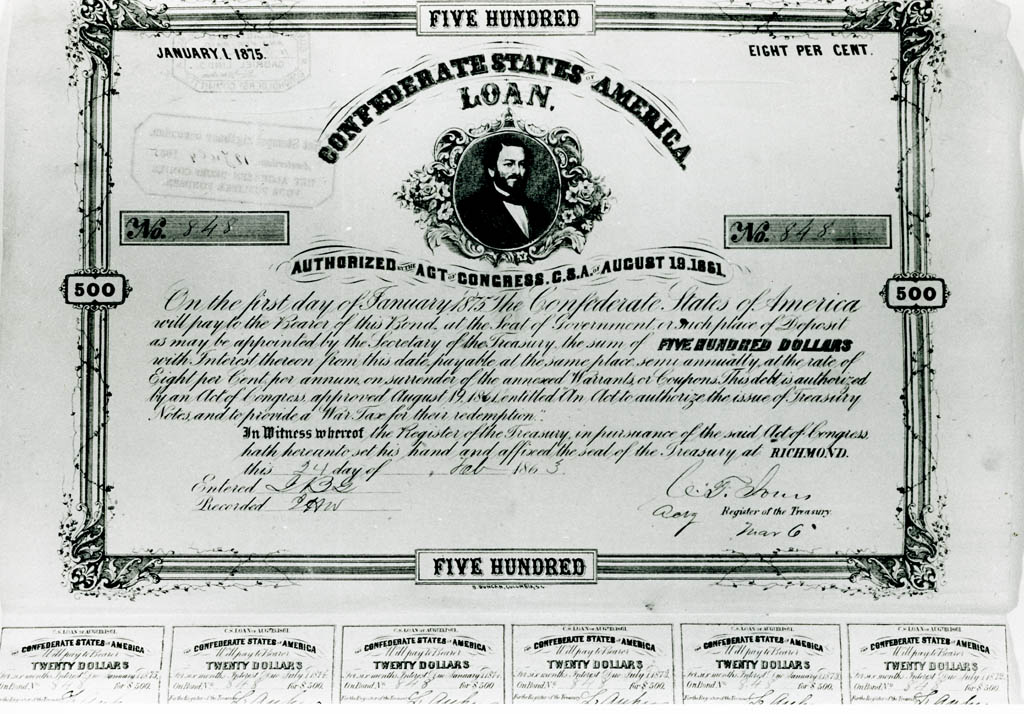 FIVE HUNDRED
JANUARY. 1, 1875.
EIGHT PER CENT.
CONFEDERATE STATES OF AMERICA
LOAN,
No. 848
No. 848
AUTHORIZED BY THE ACT OF CONGRESS. C.S.A. OF AUGUST 19.1861.
500
500
On the first day of January 1875 The Confederate States of America
will pay to the Bearer of this Bond, at the Seat of Government, or such place of Deposit
as may be appointed by the Secretary of the Treasury, the sum of FIVE HUNDRED DOLLARS
with Interest thereon from this date, payable at the same place, semi annually, at the rate of
Eight per Cent, per annum, on surrender of the annexed Warrants, or Coupons. This debt is authorized
by an Act of Congress, approved August 19, 1861, entitled "An Act to authorize the issue of Treasury
Notes, and to provide a War Tax for their redemption."
In Witness whereof the Register of the Treasury, in pursuance of the said Act of Congress,
hath hereunto set his hand and affixed the seal of the Treasury at RICHMOND.
this 24 day of Feb 1863
Entered
Recorded
Register of the Treasury
Mar 6
FIVE HUNDRED
B. DUNCAN, COLUMBIA, S.C.
C.S. LOAN OF AUG. 19. 1861.
CONFEDERATE STATES OF AMERICA
Will pay to Bearer
TWENTY DOLLARS
for six months Interest due January
On Bond No. for $500.
For the Register of the Treasury
C.S. LOAN OF AUG. 19. 1861.
CONFEDERATE STATES OF AMERICA
Will pay to Bearer
TWENTY DOLLARS
for six months Interest due July
On Bond No. for $500.
For the Register of the Treasury
C.S. LOAN OF AUG. 19. 1861.
CONFEDERATE STATES OF AMERICA
Will pay to Bearer
TWENTY DOLLARS
for six months Interest due January
On Bond No. 848 for $500.
For the Register of the Treasury
C.S. LOAN OF AUG. 19. 1861.
CONFEDERATE STATES OF AMERICA
Will pay to Bearer
TWENTY DOLLARS
for six months Interest due July
On Bond No. for $500.
For the Register of the Treasury
C.S. LOAN OF AUG. 19. 1861.
CONFEDERATE STATES OF AMERICA
Will pay to Bearer
TWENTY DOLLARS
for six months Interest due January
On Bond No. for $500.
For the Register of the Treasury
C.S. LOAN OF AUG. 19. 1861.
CONFEDERATE STATES OF AMERICA
Will pay to Bearer
TWENTY DOLLARS
for six months Interest due July
On Bond No. for $500.
For the Register of the Treasury